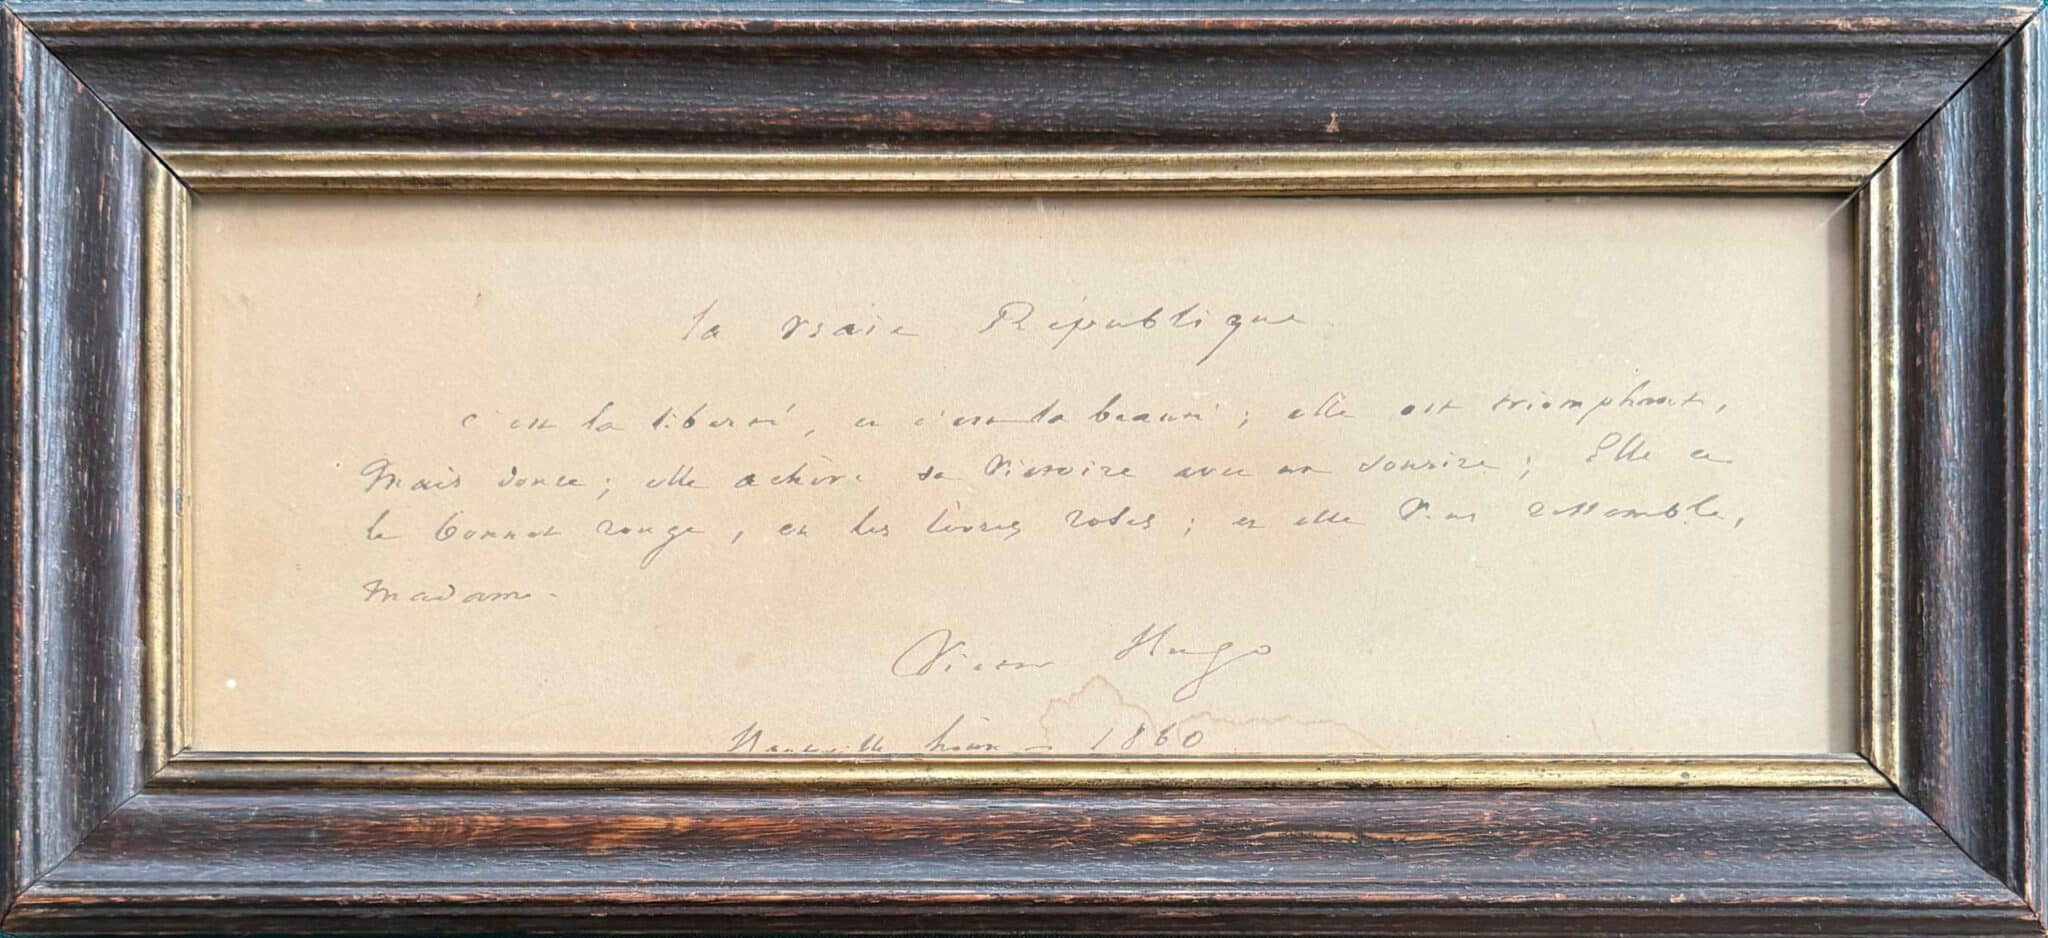 la vraie République
c'est la liberté, et c'est la beauté ; elle est triomphante,
Mais douce ; elle achève sa victoire avec un sourire ; Elle a
le bonnet rouge, et les lèvres roses ; et elle vous ressemble,
madame.
Victor Hugo
Hauteville house - 1860